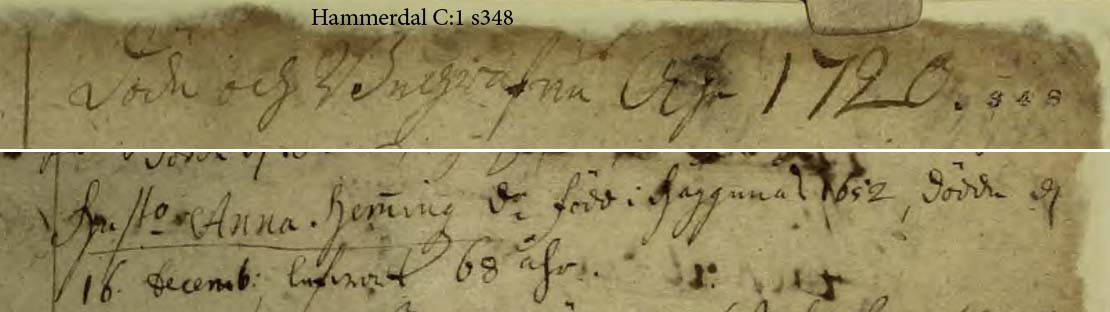 Hammerdal C:1 s348
Döde och Begrafne Åhr 1720. 348
Hustro Anna Hemming dr född i Häggenås 1652, dödde d
16. decemb: lefwat 68 åhr.